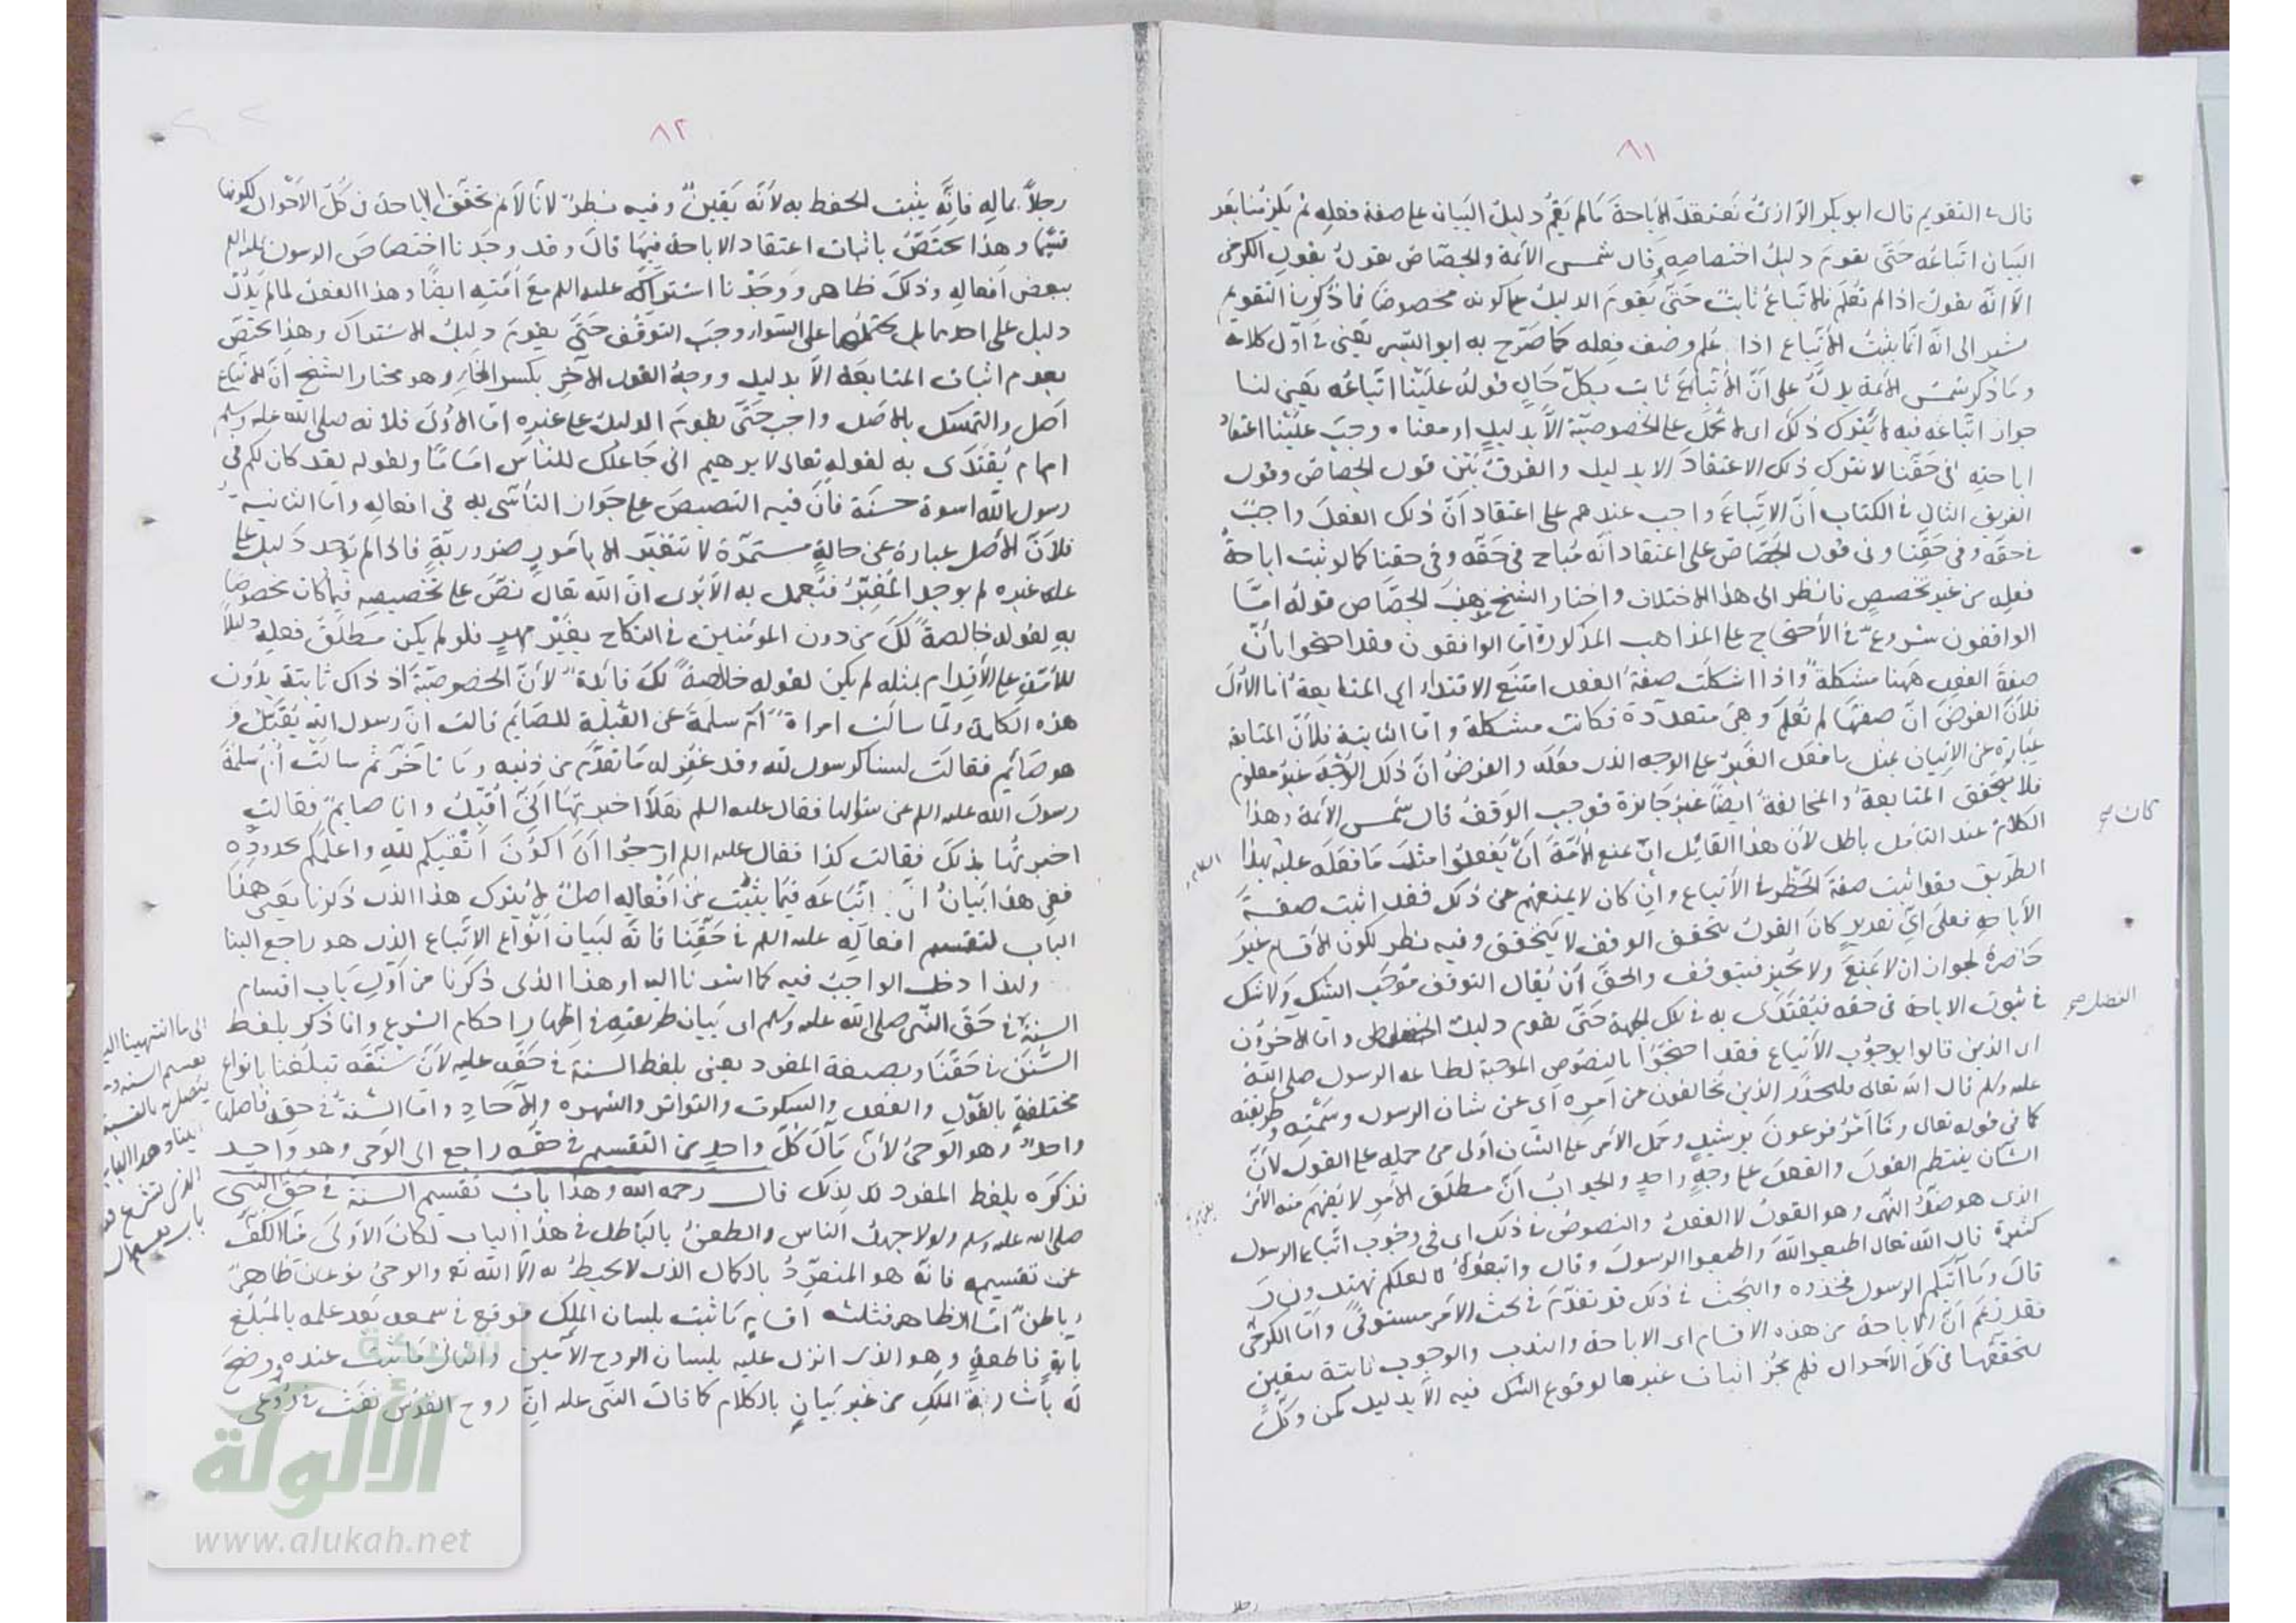 ٨١
قال في التقويم قال ابو بكر الرازي نعتقد الاباحة ما لم يقم دليل البيان على صفة فعله ثم يلزمنا بعد
البيان اتباعه حتى يقوم دليل اختصاصه وقال شمس الائمة والجصاص يقول بقول الكرخي
الا انه يقول اذا لم تعلم فالاتباع ثابت حتى يقوم الدليل على كونه مخصوصا فما ذكر في التقويم
يشير الى انه انما يثبت الاتباع اذا علم وصف فعله كما صرح به ابو اليسر يعني في اول كلامه
وما ذكر شمس الائمة يدل على ان الاتباع ثابت بكل حال قوله علينا اتباعه يعني لنا
جواز اتباعه فيه لا يترك ذلك اي لا يحمل على الخصوصية الا بدليل او معناه وجب علينا اعتقاد
اباحته في حقنا لا نترك ذلك الاعتقاد الا بدليل والفرق بين قول الجصاص وقول
الفريق الثاني في الكتاب ان الاتباع واجب عندهم على اعتقاد ان ذلك الفعل واجب
في حقه وفي حقنا وفي قول الجصاص على اعتقاد انه مباح في حقه وفي حقنا كما لو ثبت اباحة
فعله من غير تخصيص فانظر الى هذا الاختلاف واختار الشيخ مذهب الجصاص قوله اما
الواقفون شروع في الاحتجاج على المذاهب المذكورة اما الواقفون فقد احتجوا بان
صفة الفعل ههنا مشكلة واذا اشكلت صفة الفعل امتنع الاقتداء اي المتابعة اما الاول
فلان الفرض ان صفتها لم تعلم وهي متعددة فكانت مشكلة واما الثانية فلان المتابعة
عبارة عن الاتيان بمثل ما فعل الغير على الوجه الذي فعله والفرض ان ذلك الوجه غير معلوم
فلا يتحقق المتابعة والمخالفة ايضا غير جائزة فوجب الوقف قال شمس الائمة وهذا
الكلام عند التامل باطل لان هذا القائل ان منع الامة ان يفعلوا مثل ما فعله عليه بهذا
الطريق فقد اثبت صفة الحظر في الاتباع وان كان لا يمنعهم عن ذلك فقد اثبت صفة
الاباحة فعلى اي تقدير كان القول بتحقق الوقف لا يتحقق وفيه نظر لكون الاقسام غير
حاصرة لجواز ان لا يمنع ولا يجيز فيتوقف والحق ان يقال التوقف موجب الشك ولا شك
في ثبوت الاباحة في حقه فيقتدى به في تلك الجهة حتى يقوم دليل واما الاخرون
اي الذين قالوا بوجوب الاتباع فقد احتجوا بالنصوص الموجبة لطاعة الرسول صلى الله
عليه وسلم قال الله تعالى فليحذر الذين يخالفون عن امره اي عن شان الرسول وسمته وطريقته
كما في قوله تعالى وما امر فرعون برشيد وحمل الامر على الشان اولى من حمله على القول لان
الشان ينتظم القول والفعل على وجه واحد والجواب ان مطلق الامر لا يفهم منه الامر
الذي هو ضد النهي وهو القول لا الفعل والنصوص في ذلك اي في وجوب اتباع الرسول
كثيرة قال الله تعالى اطيعوا الله واطيعوا الرسول وقال واتبعوه لعلكم تهتدون وقال
قال وما آتيكم الرسول فخذوه والبحث في ذلك قد تقدم في بحث الامر مستوفى واما الكرخي
فقد زعم ان الاباحة من هذه الاقسام اي الاباحة والندب والوجوب ثابتة بيقين
لتحققها في كل الاحوال فلم يجز اثبات غيرها لوقوع الشك فيه الا بدليل كمن وكل
كان
الكلام
رجلا
٨٢
رجلا بماله فانه يثبت الحفظ به لانه يقين وفيه نظر لانا لا نم تحقق الاباحة في كل الاحوال لكونها
قسما وهذا يختص باثبات اعتقاد الاباحة فيها قال وقد وجدنا اختصاص الرسول عليه السلم
ببعض افعاله وذلك ظاهر ووجدنا اشتراكه عليه السلم مع امته ايضا وهذا الفعل لما لم يدل
دليل على احدهما بل يحتملهما على السواء وجب التوقف حتى يقوم دليل الاشتراك وهذا يختص
بعدم اثبات المتابعة الا بدليل ووجه القول الآخر بكسر الخاء وهو مختار الشيخ ان الاتباع
اصل والتمسك بالاصل واجب حتى يقوم الدليل على غيره اما الاول فلانه صلى الله عليه وسلم
امام يقتدى به لقوله تعالى لابرهيم اني جاعلك للناس اماما ولقوله لقد كان لكم في
رسول الله اسوة حسنة فان فيه التنصيص على جواز التأسي به في افعاله واما الثانية
فلان الاصل عبارة عن حالة مستمرة لا تتغير الا بامور ضرورية فاذا لم توجد دليل على
على غيره لم يوجد المغير فيعمل به الا يرى ان الله تعالى نص على تخصيصه فيما كان مخصوصا
به لقوله خالصة لك من دون المؤمنين في النكاح بغير مهر فلو لم يكن مطلق فعله دليلا
للامة على الاقدام بمثله لم يكن لقوله خالصة لك فائدة لان الخصوصية اذ ذاك ثابتة بدون
هذه الكلمة ولما سالت امراة ام سلمة عن القبلة للصائم قالت ان رسول الله يقبل و
هو صائم فقالت لسنا كرسول الله وقد غفر له ما تقدم من ذنبه وما تاخر ثم سالت ام سلمة
رسول الله عليه السلم عن سئوالها فقال عليه السلم هلا اخبرتها اني اقبل وانا صايم فقالت
اخبرتها بذلك فقالت كذا فقال عليه السلم ارجوا ان اكون اتقيكم لله واعلمكم بحدوده
ففي هذا بيان ان اتباعه فيما يثبت من افعاله اصل لا يترك هذا الذي ذكرنا يعني هذا
الباب لتقسيم افعاله عليه السلم في حقنا فانه لبيان انواع الاتباع الذي هو راجع الينا
ولهذا دخل الواجب فيه كما اشرنا اليه او هذا الذي ذكرنا من اول باب اقسام
السنة في حق النبي صلى الله عليه وسلم اي بيان طريقته في اظهار احكام الشرع وانما ذكر بلفظ
السنن في حقنا وبصيغة المفرد يعني بلفظ السنة في حقه عليه لان سنته تبلغنا بانواع
مختلفة بالقول والفعل والسكوت والتواتر والشهره والآحاد واما السنة في حقه فاصلها
واحد وهو الوحي لان مآل كل واحد من التقسيم في حقه راجع الى الوحي وهو واحد
فذكره بلفظ المفرد لذلك قال رحمه الله وهذا باب تقسيم السنة في حق النبي
صلى الله عليه وسلم ولولا جهل الناس والطعن بالباطل في هذا الباب لكان الاولى منا الكف
عن تقسيمه فانه هو المتفرد بالكمال الذي لا يحيط به الا الله تع والوحي نوعان ظاهر
وباطن اما الظاهر فثلثه اقسام ما ثبت بلسان الملك فوقع في سمعه بعد علمه بالمبلغ
باية قاطعة وهو الذي انزل عليه بلسان الروح الامين والثاني ما ثبت عنده ووضح
له باشارة الملك من غير بيان بالكلام كما قال النبي عليه ان روح القدس نفث في روعي
الى ما انتهينا
شبكة
الألوكة
www.alukah.net